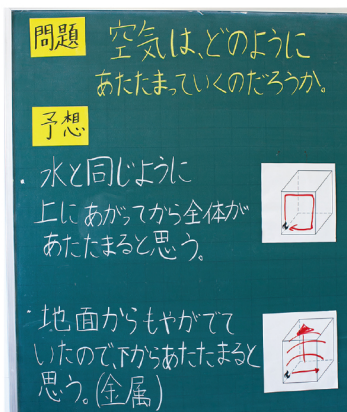 問題
空気は、どのように
あたたまっていくのだろうか。
予想
・水と同じように
上にあがってから全体が
あたたまると思う。
・地面からもやがでて
いたので、下からあたたまると
思う。(金属)